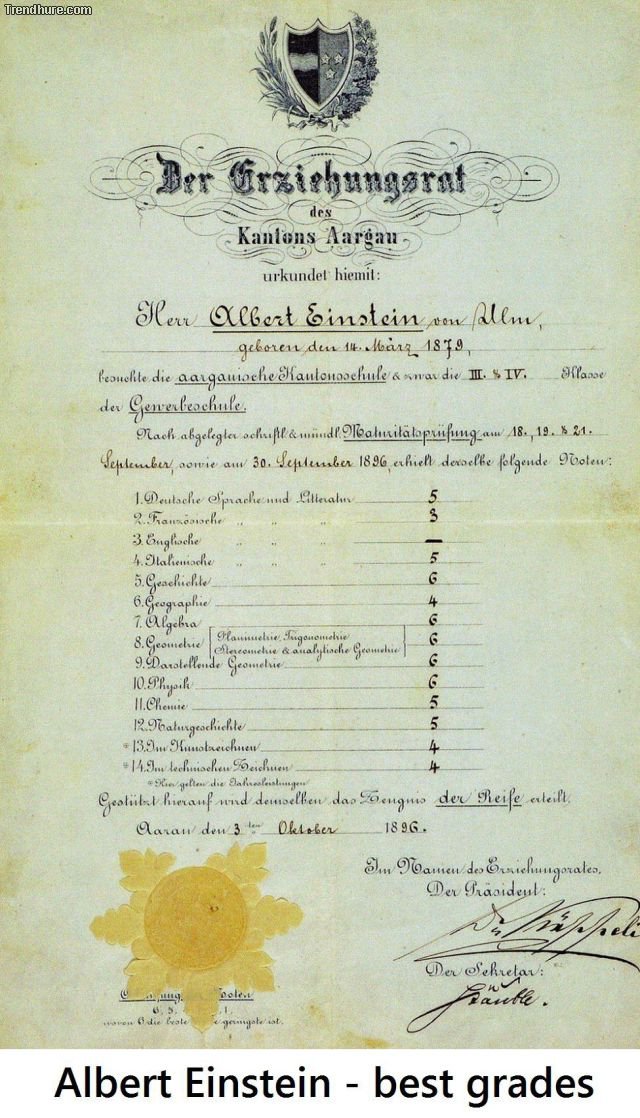 Trendhure.com
Der Erziehungsrat
des
Kantons Aargau
urkundet hiemit:
Herr Albert Einstein von Ulm,
geboren den 14. März 1879,
besuchte die aargauische Kantonsschule & zwar die III. & IV. Klasse
der Gewerbeschule.
Nach abgelegter schriftl. & mündl. Maturitätsprüfung am 18., 19. & 21.
September, sowie am 30. September 1896, erhielt derselbe folgende Noten:
1. Deutsche Sprache und Litteratur 5
2. Französische " " " 3
3. Englische " " " —
4. Italienische " " " 5
5. Geschichte 6
6. Geographie 4
7. Algebra 6
8. Geometrie [Planimetrie, Trigonometrie 6
Stereometrie & analytische Geometrie]
9. Darstellende Geometrie 6
10. Physik 6
11. Chemie 5
12. Naturgeschichte 5
*13. Im Kunstzeichnen 4
*14. Im technischen Zeichnen 4
*Hier gelten die Jahresleistungen
Gestützt hierauf wird demselben das Zeugnis der Reife erteilt.
Aarau den 3ten Oktober 1896.
Im Namen des Erziehungsrates,
Der Präsident:
Der Sekretär:
Noten
6. 5. 1.
wovon 6 die beste geringste ist.
Albert Einstein - best grades